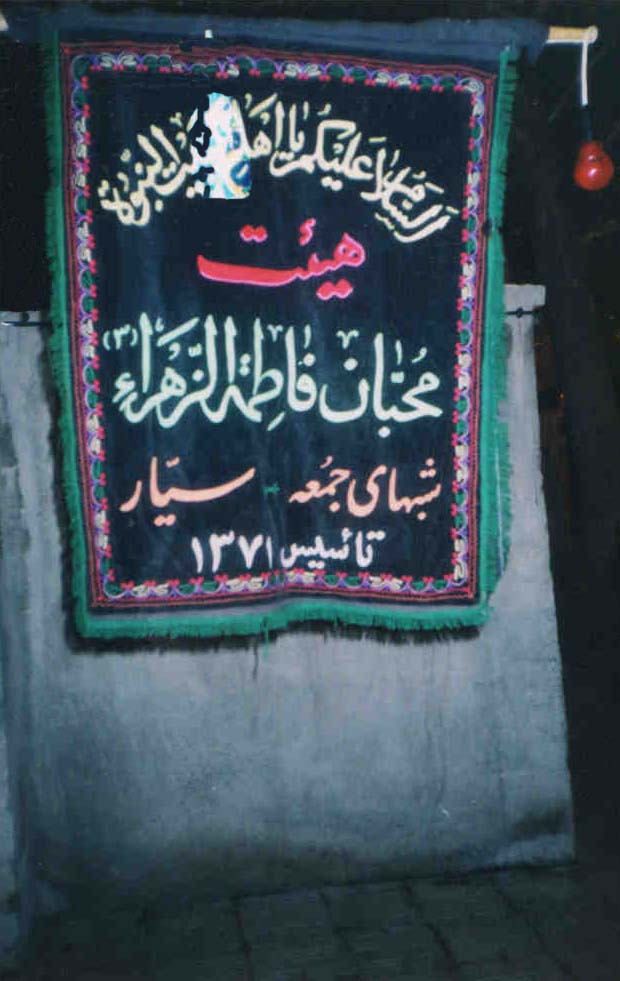 السَّلامُ عَلَیْکُم یا اهل بیت النبُوَّة
هیئت
مُحبّان فاطمة الزَّهراءِ (۳)
شبهای جمُعه - سیّار
تائسیس ۱۳۷۱